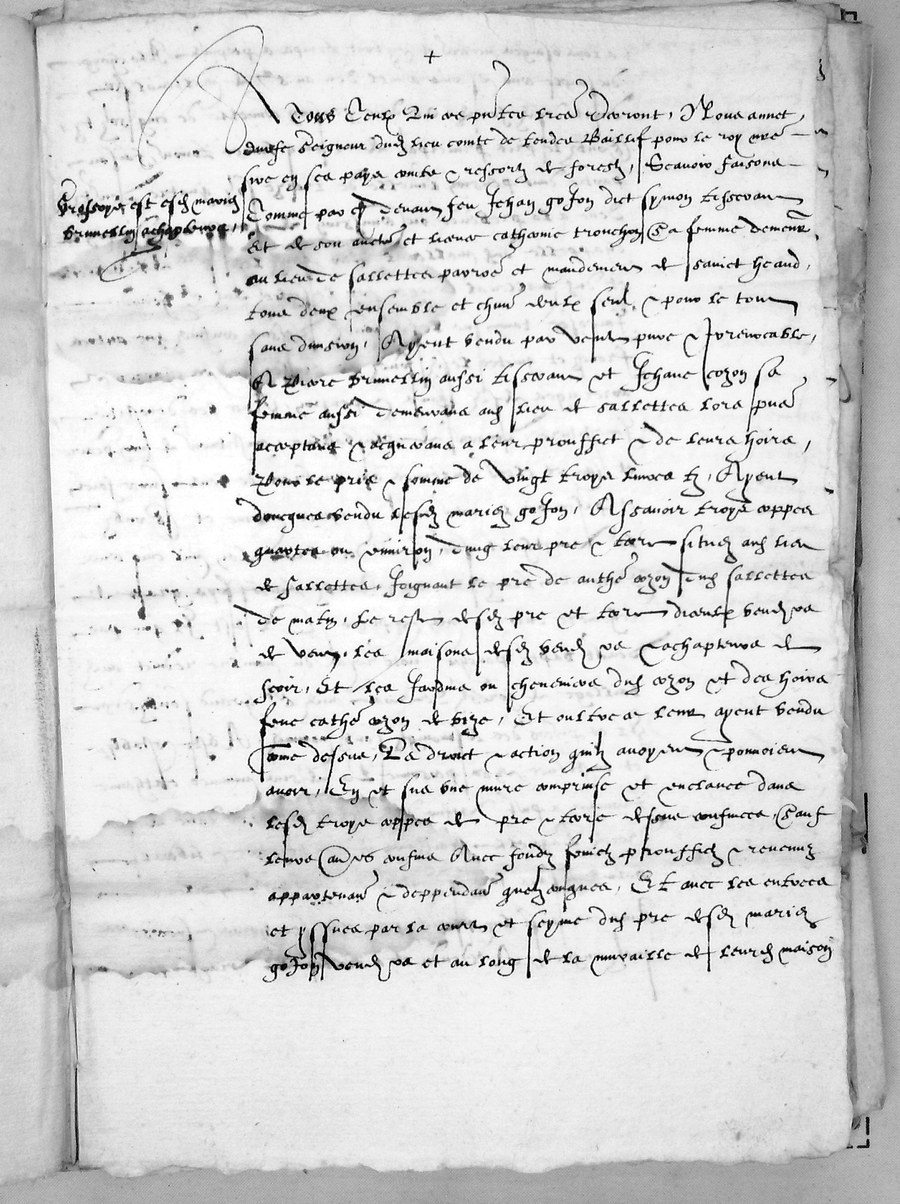 +
A Tous Ceulx Qui ces pntes lres verront, Nous annet
durfe Seigneur dud lieu comte de tendes Baillif pour le roy nre
sire en ses pays comte & ressortz de forestz, Scavoir faisons
Comme par cy devant feu Jehan goJon dict symon tisserant
Et de son aucte et licence catherine tronchon Sa femme demeur
au lieu de sallettes parroe et mandement de sainct heand,
tous deux ensemble et chun deulx seul & pour le tout
sans division, Ayent vendu par vente pure & Irrevocable,
A Piere brunellin aussi tisserant et Jehane cozon sa
femme aussi demeurans aud lieu de sallettes lors pns
acceptans & acquerans a leur prouffict & de leurs hoirs,
Pour le pris & somme de vingt troys livres tz, Ayent
doncques vendu lesd mariez goJon, Assavoir troys coppes
quartes ou environ, dung leur pre & terre situez aud lieu
de sallettes, Joignant le pre de anthe cozon dud sallettes
de matin, Le reste desd pre et terre diceulx vend rs
de vent, les maisons desd vend rs & achapteurs de
soir, Et les Jardins ou cheneviers dud cozon et des hoirs
feue cathe cozon de bize, Et oultre ce leur ayent vendu
come dessus, Le droict & action quilz avoyent & pouvoient
avoir, En et sus une mure comprinse et enclance dans
lesd troys coppes de pre & terre dessus confinees, Sauf
leurs aus confins Avec fondz fruictz prouffictz & revenuz
appartenans & deppendans quelzconques, Et avec les entrees
et yssues par la court et seyme dud pre desd mariez
goJon vend rs et au long de la muraille de leursd maison
Grossoye est esd mariez
brunellin achapteurs